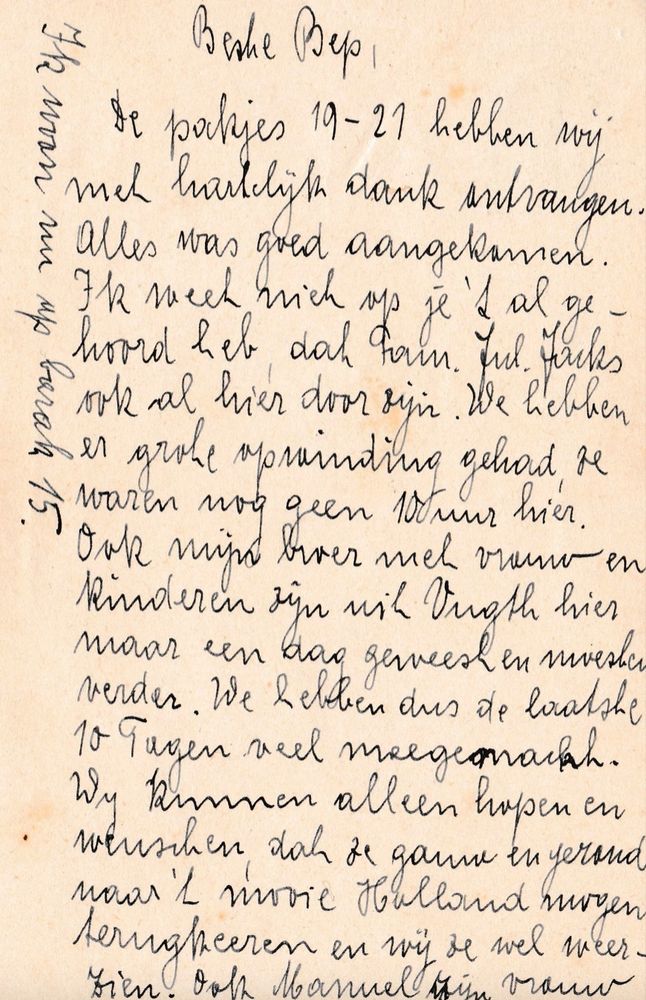 Beste Bep,
De pakjes 19-21 hebben wij
met hartelijk dank ontvangen.
Alles was goed aangekomen.
Ik weet niet op je 't al ge-
hoord heb, dat Fam. Jul. Jacks
ook al hier door zijn. We hebben
er grote opwinding gehad, ze
waren nog geen 10 uur hier.
Ook mijn broer met vrouw en
kinderen zijn uit Vugth hier
maar een dag geweest en moesten
verder. We hebben dus de laatste
10 Tagen veel meegemacht.
Wij kunnen alleen hopen en
wenschen, dat ze gauw en gezond
naar 't mooie Holland mogen
terugkeeren en wij ze wel weer-
zien. Ook Manuel zijn vrouw
Ik woon nu op barak 15.